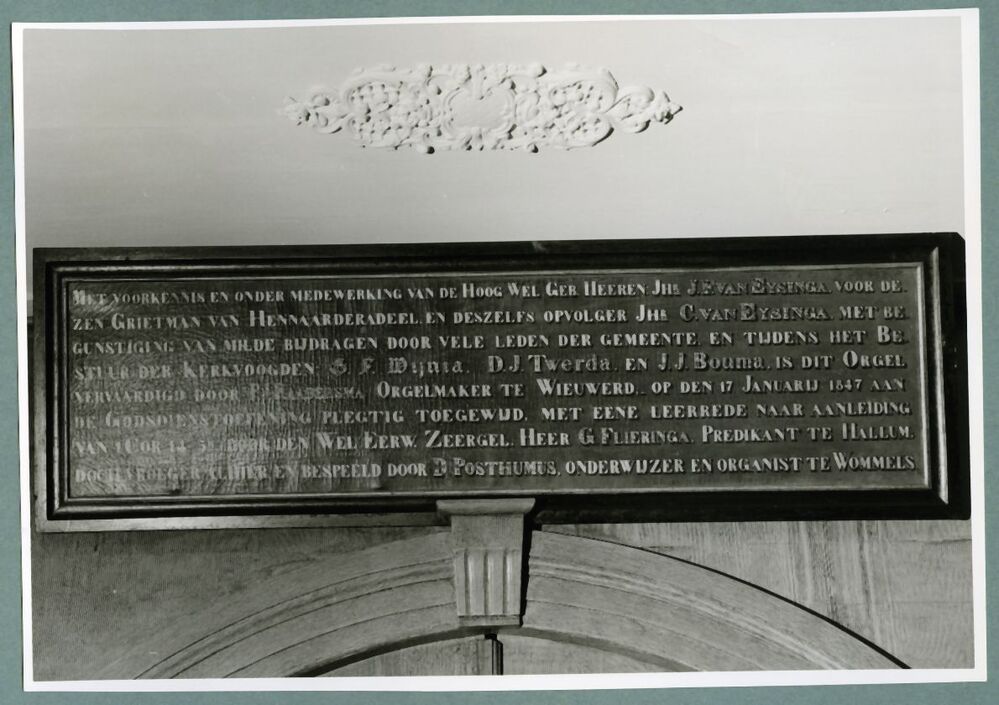 MET VOORKENNIS EN ONDER MEDEWERKING VAN DE HOOG WEL GEB HEEREN JHR J.F. VAN EYSINGA, VOOR DE-
ZEN GRIETMAN VAN HENNAARDERADEEL, EN DESZELFS OPVOLGER JHR C. VAN EYSINGA, MET BE-
GUNSTIGING VAN MILDE BIJDRAGEN DOOR VELE LEDEN DER GEMEENTE, EN TIJDENS HET BE-
STUUR DER KERKVOOGDEN S. F. Wijnia, D.J. TWERDA, EN J.J. BOUMA, IS DIT ORGEL
VERVAARDIGD DOOR ORGELMAKER TE WIEUWERD, OP DEN 17 JANUARIJ 1847 AAN
DE GODSDIENSTOEFENING PLEGTIG TOEGEWIJD, MET EENE LEERREDE NAAR AANLEIDING
VAN 1 COR 14 DOOR DEN WEL EERW. ZEERGEL. HEER G. FLIERINGA, PREDIKANT TE HALLUM,
DOCH VROEGER ALHIER, EN BESPEELD DOOR D. POSTHUMUS, ONDERWIJZER EN ORGANIST TE WOMMELS